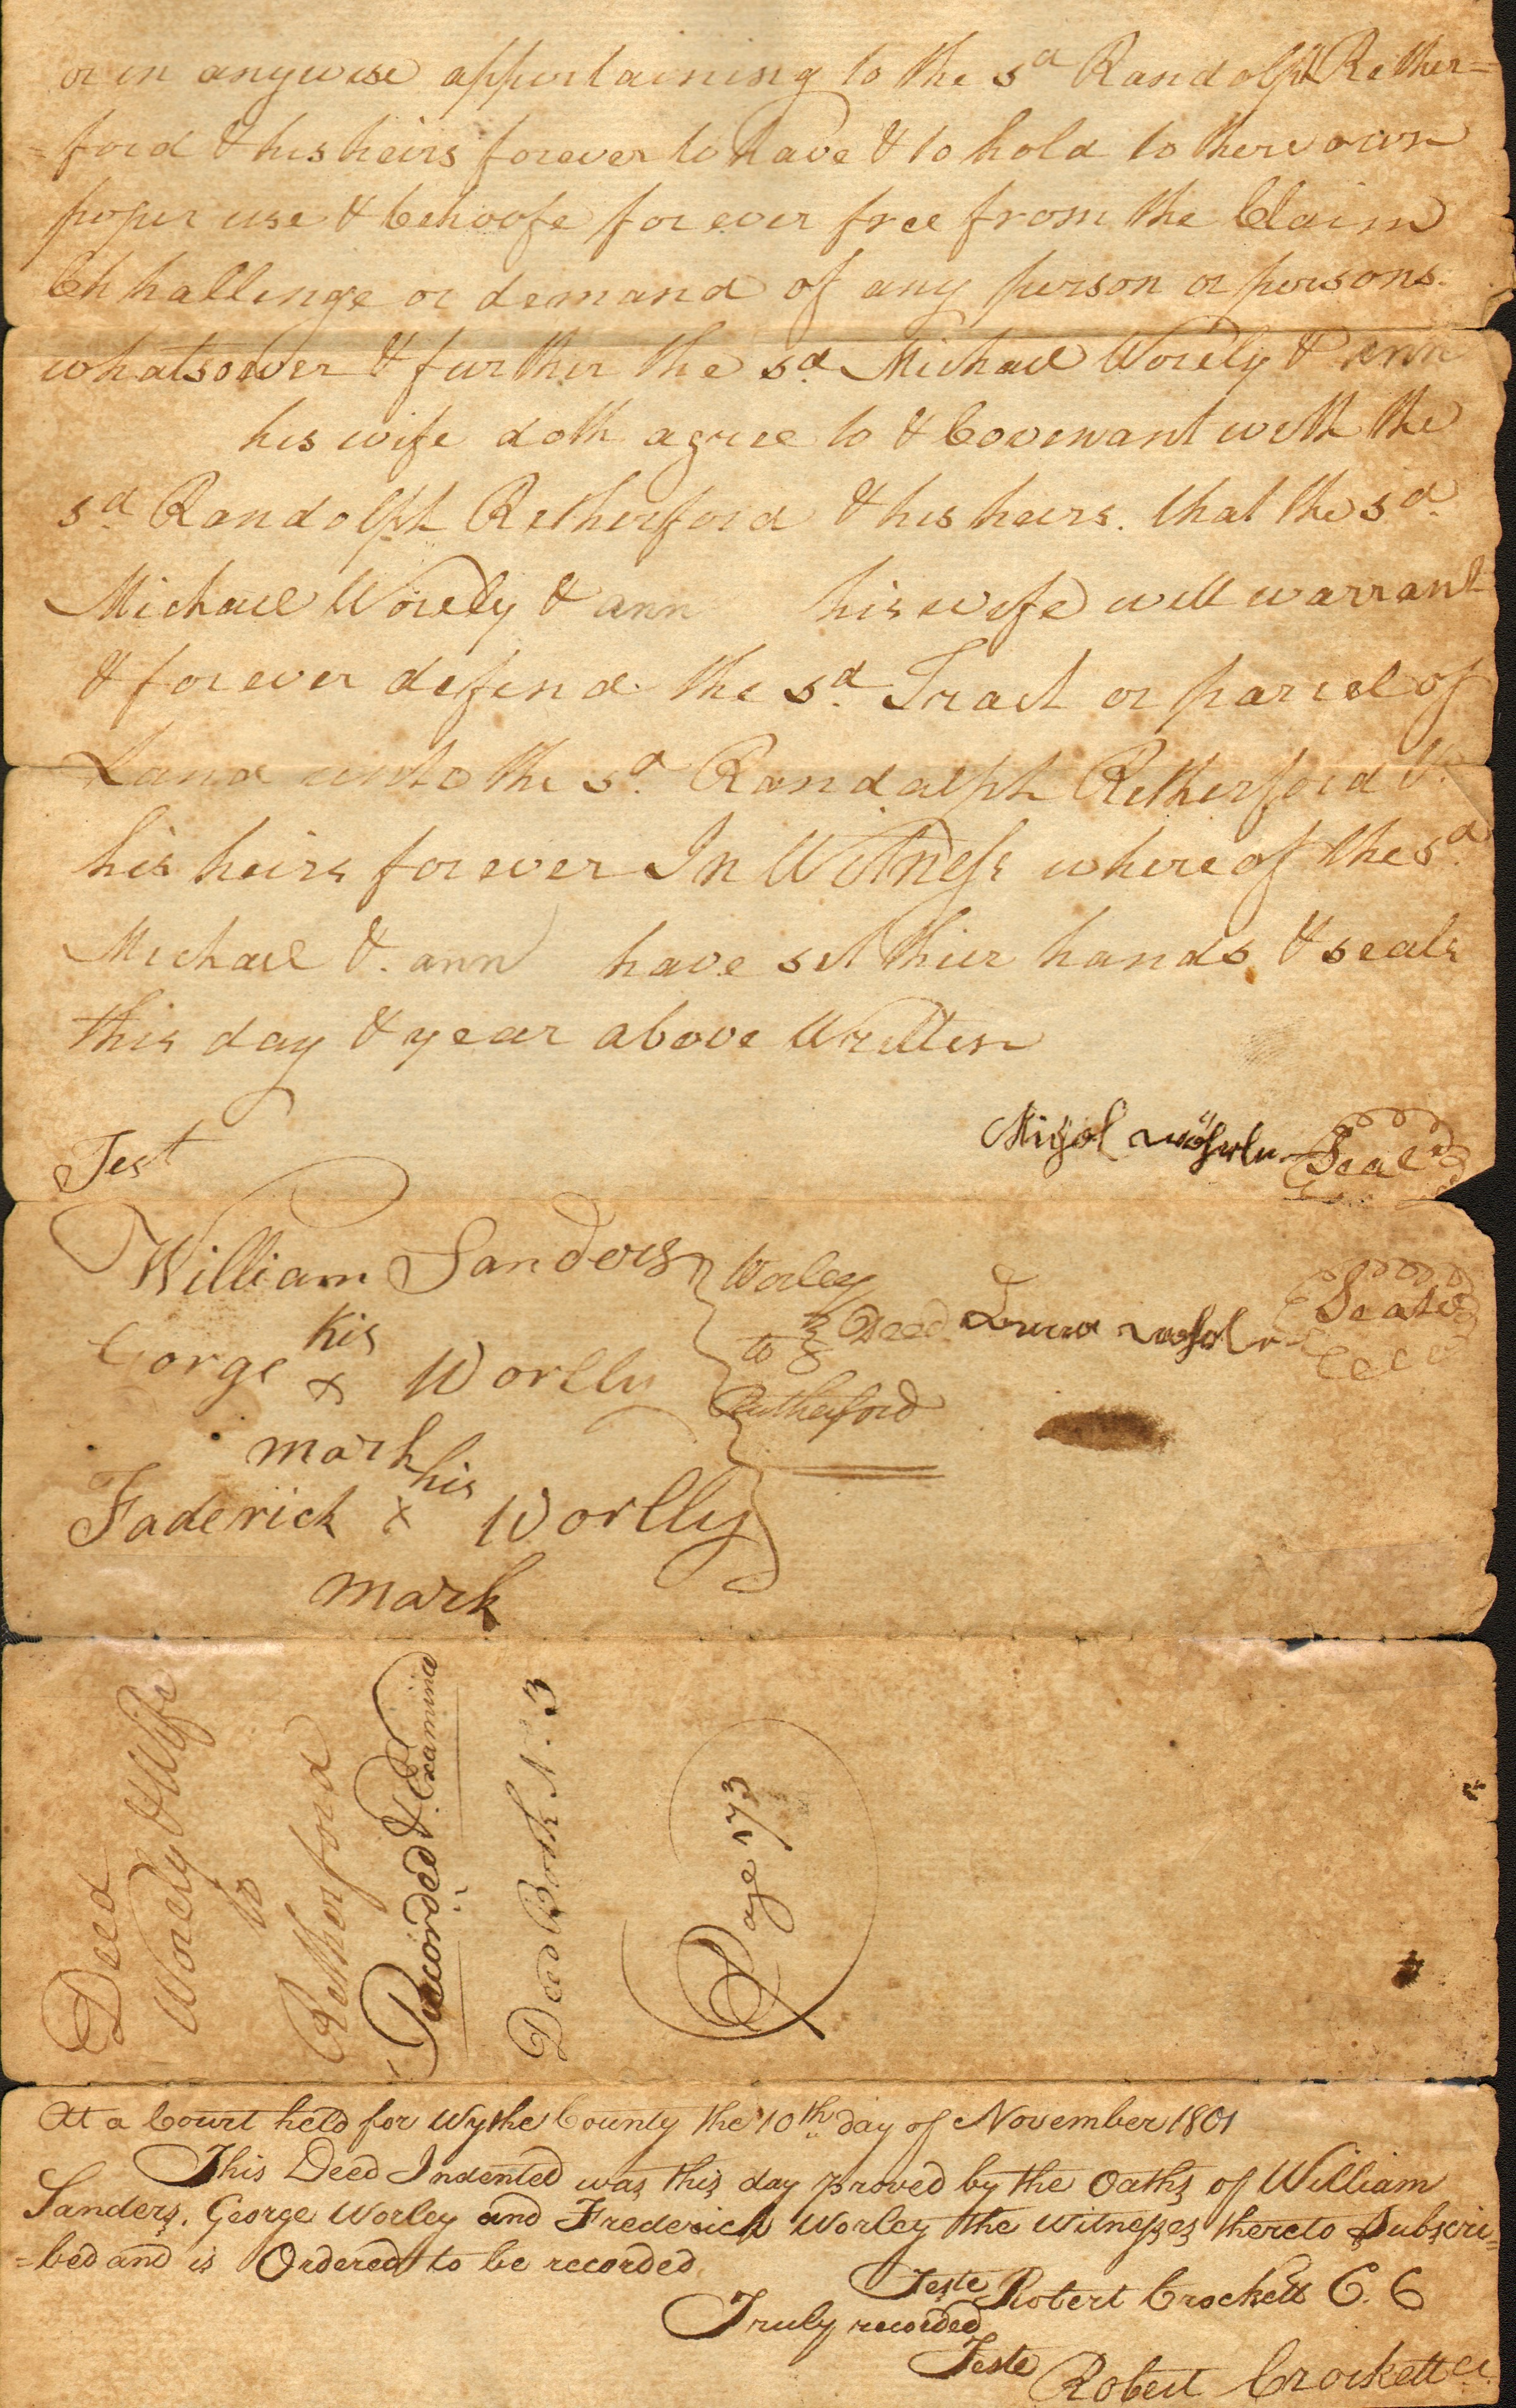 or in anywise appertaining to the sd Randolph Rether=
=ford & his heirs forever to have & to hold to there own
proper use & behoofe for ever free from the Claim
Chhallinge or demand of any person or persons
whatsoever & further the sd. Michael Worely & ann
his wife doth agree to & Covenant with the
sd. Randolph Retherford & his heirs. that the sd.
Michael Worely & ann his wife will warrant
& for ever defend the sd. Tract or parcel of
Land unto the sd. Randalph Retherford &
his heirs for ever In Witness where of the sd.
Michael &. ann have set thier hands & seals
this day & year above Written
Test
Michel Wöhrle Seal
William Sanders
Worley
to Deed
Rutherford
Anna Wohrle Seal
Gorge his x Worlly
mark
Faderick his x Worlly
mark
Deed
Worely & Wife
to
Retherford
Recorded & Examined
Deed Book N. 3
Page 173
At a Court held for Wythe County the 10th day of November 1801
This Deed Indented was this day proved by the Oaths of William
Sanders, George Worley and Frederick Worley the witnesses thereto Subscri=
=bed and is Ordered to be recorded
Teste Robert Crockett C. C
Truly recorded
Teste
Robert Crockett CC